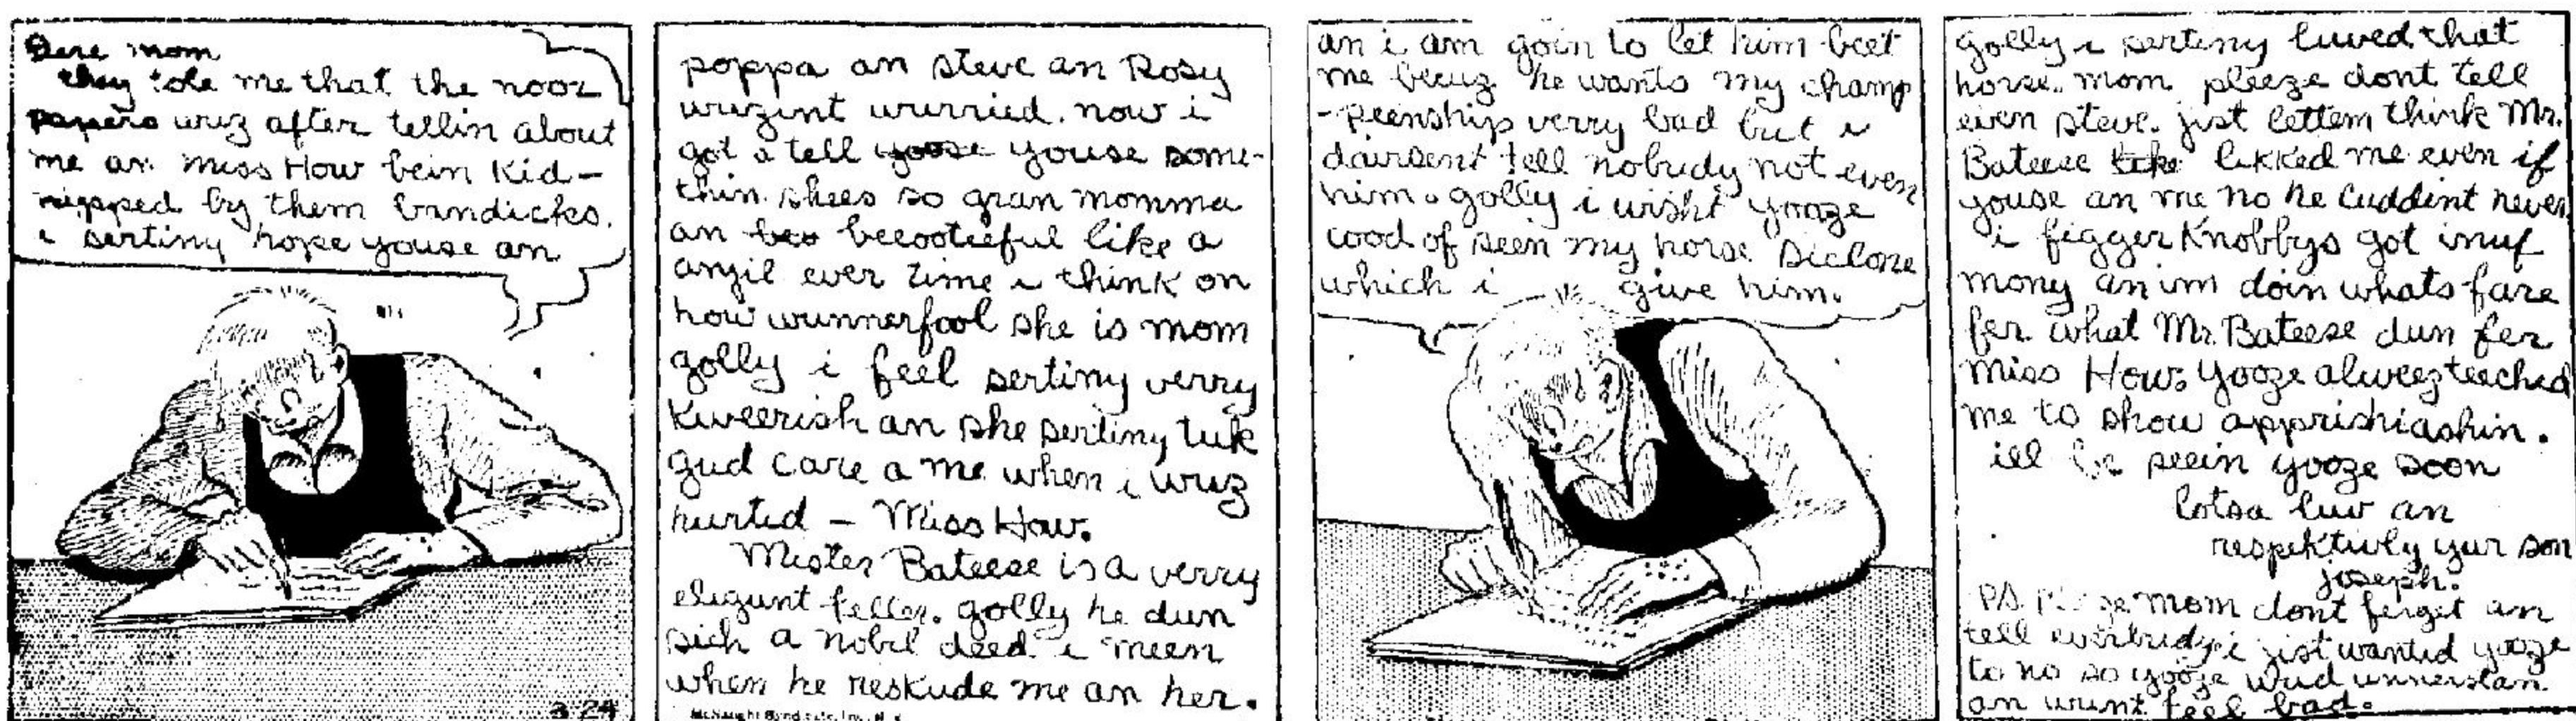 Dere mom
they tole me that the nooz
papers wuz after tellin about
me an miss How bein Kid-
nipped by them bandicks.
i sertiny hope youse an
3-24
poppa an steve an Rosy
wuzint wurried. now i
got a tell yoose youse some-
thin. shees so gran momma
an beo beeooteeful like a
angil ever time i think on
how wunnerfool she is mom
golly i feel sertiny verry
Kweerish an she sertiny tuk
gud care a me when i wuz
hurted - Miss How.
Mister Bateese is a verry
eligunt feller. golly he dun
sich a nobil deed i meen
when he reskude me an her.
McNaught Syndicate, Inc., N. Y.
an i am goin to let him beet
me becuz he wants my champ
-peenship verry bad but i
dairsent tell nobudy not even
him. golly i wisht yooze
cood of seen my horse Siclone
which i give him.
golly i sertiny luved that
horse. mom pleeze dont tell
even steve. jist lettem think Mr.
Bateese likked me even if
youse an me no he cuddint never
i figger Knobbys got inuf
mony an im doin whats fare
fer what Mr. Bateese dun fer
miss How. Yooze alweez teeched
me to show apprishiashin.
ill be seein yooze soon
lotsa luv an
respektivly yur son
joseph.
PS mom dont ferget an
tell everbudy. i jist wanted yooze
to no so yooze wud unnerstan
an wunt feel bad.